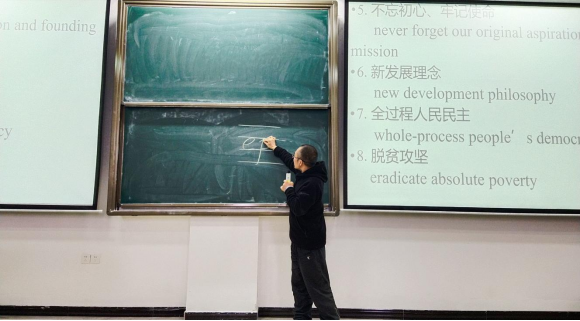 on and founding
cy
•5. 不忘初心、牢记使命
never forget our original aspiration
mission
•6. 新发展理念
new development philosophy
•7. 全过程人民民主
whole-process people's democ
•8. 脱贫攻坚
eradicate absolute poverty